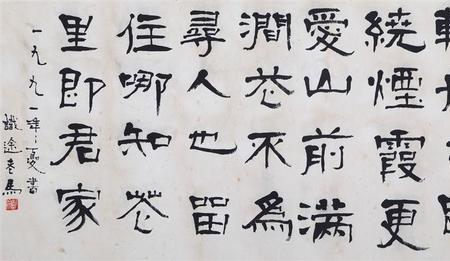 繞煙霞更
愛山前滿
澗花不為
尋人也留
住哪知花
里即君家
一九九一年夏書
識途老馬